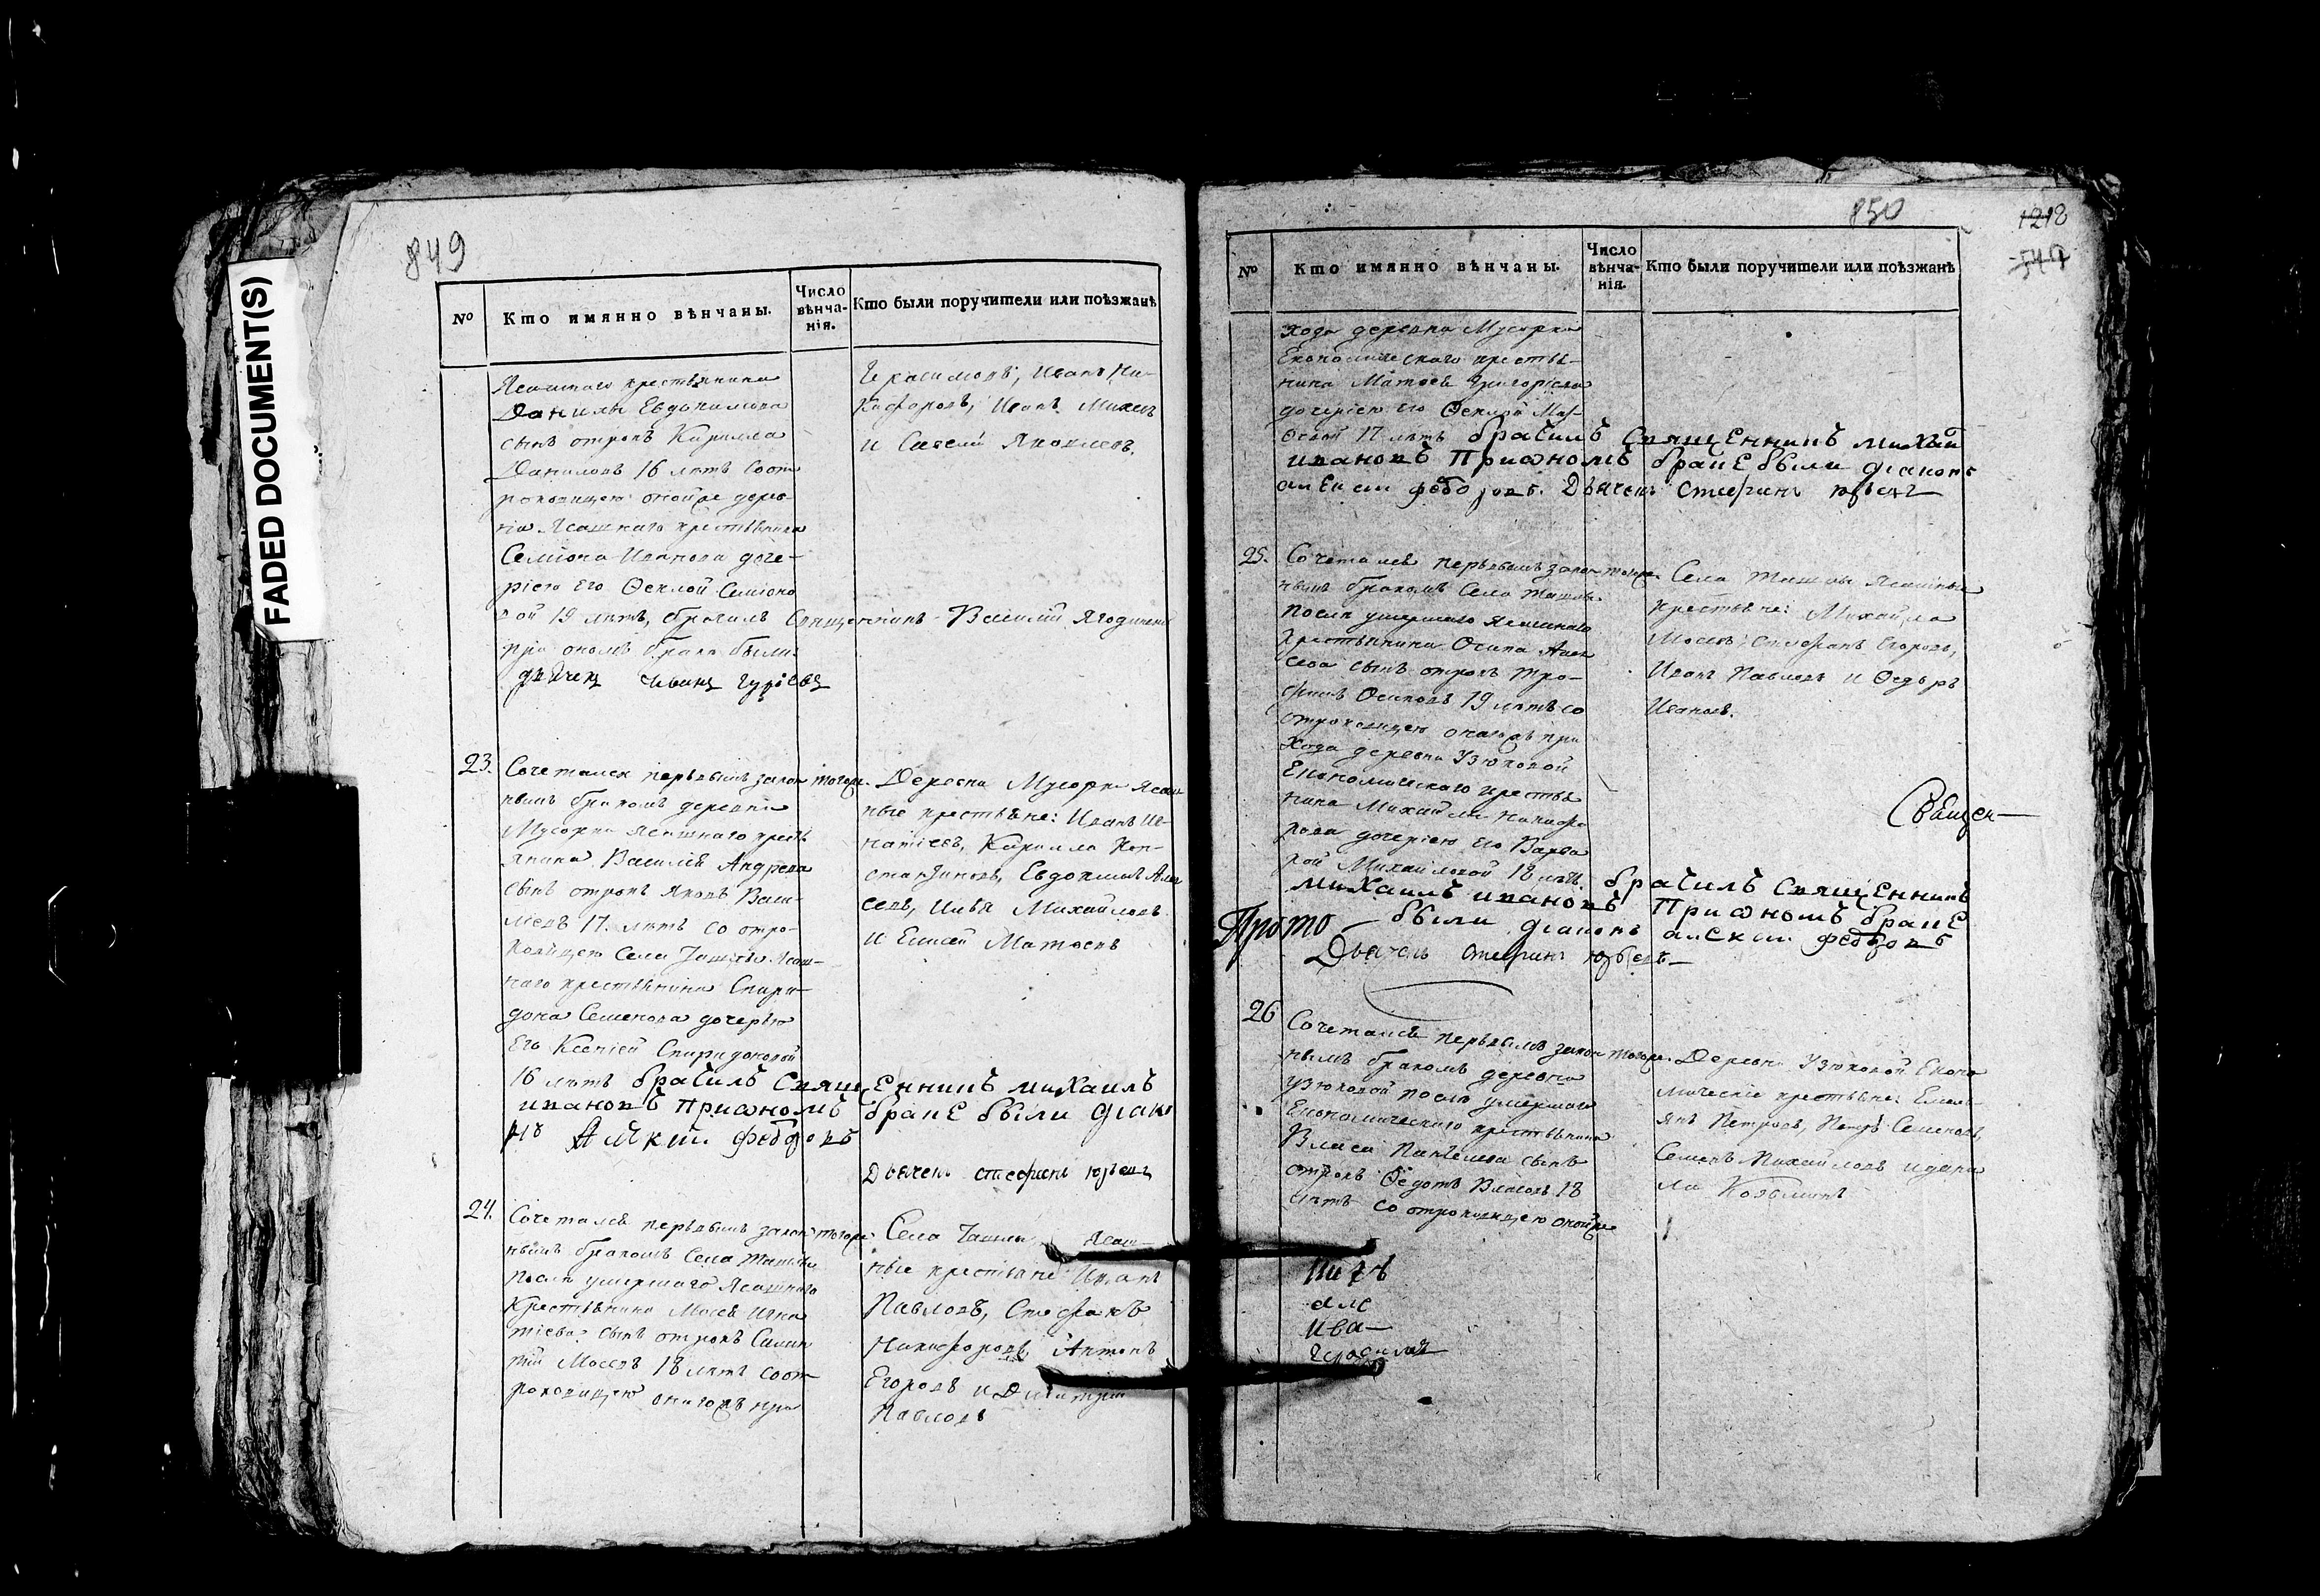 FADED DOCUMENT(S)
849
№
Кто имянно вѣнчаны.
Число
вѣнча-
нія.
Кто были поручители или поѣзжанѣ
Ясашнаго крестьянина
Данилы Евдокимова
сынъ отрокъ Кирилла
Даниловъ 16 лѣтъ соот
роковицею оной же дерев
ни Ясашнаго крестьянина
Семіона Иванова доче-
рію его Ѳеклой Семіоно
вой 19 лѣтъ, брачилъ Священникъ Василій Ягодинской
при ономъ браке были
дьячекъ Иванъ Гурьевъ
Герасимовъ, Иванъ Ни-
кифоровъ, Иванъ Михеевъ
и Савелий Яковлевъ.
23.
Сочетался перьвымъ закон
нымъ бракомъ деревни
Мусорки Ясашнаго крест
янина Василія Андреева
сынъ отрокъ Яковъ Васи-
лиевъ 17. лѣтъ со отро-
ковицею Села Ташлы Ясаш-
наго крестьянина Спири-
дона Семенова дочерью
Его Ксенией Спиридоновой
16 лѣтъ брачилъ Священникъ михаилъ
ивановъ При ономъ браке были диако
нъ Алѣкѣй федоровъ
Дьячекъ стефанъ юрьевъ
тогоже
Деревни Мусорки Ясаш
ные крестьяне: Иванъ Иг-
натіевъ, Кирилла Кон-
стантиновъ, Евдокимъ Алек
сеевъ, Илья Михайловъ
и Елисей Матвеевъ
24.
Сочетался перьвымъ закон
нымъ бракомъ Села Ташлы
после умершаго Ясашнаго
Крестьянина Мосея Игна
тіева сынъ отрокъ
Мосеевъ 18 лѣтъ соот
роковицею онагожъ при
тогоже
Села Ташлы Ясаш-
ные крестьяне Иванъ
Павловъ, Стефанъ
Никифоровъ, Антонъ
Егоровъ и Димитрий
Павловъ
850
1218
549
№
Кто имянно вѣнчаны.
Число
вѣнча-
нія.
Кто были поручители или поѣзжанѣ
хода деревни Мусорки
Економическаго крестья-
нина Матвея Григорьева
дочерію его Ѳеклой Мат-
веевой 17 лѣтъ брачилъ Священникъ михаи
ивановъ При ономъ браке были диаконъ
алексеи федоровъ. Дьячекъ стефанъ юрьевъ
25.
Сочетался перьвымъ закон
нымъ бракомъ Села Ташлы
после умершаго Ясашнаго
крестьянина Осипа Алек
сеева сынъ отрокъ Тро-
фимъ Осиповъ 19 лѣтъ со
отроковицею онагожъ при
хода деревни Узюковой
Економическаго крестья
нина Михайлы Никифо
рова дочерію его Варва
рой Михайловой 18 лѣтъ. брачилъ Священникъ
михаилъ ивановъ При ономъ браке
были диаконъ алексеи федоровъ
Дьячекъ стефанъ юрьевъ
тогоже
Села Ташлы Ясашные
крестьяне: Михайла
Мосеевъ, Стефанъ Егоровъ,
Иванъ Павловъ и Ѳедоръ
Ивановъ.
Священ-
Прото
26
Сочетался перьвымъ закон
нымъ бракомъ деревни
Узюковой после умершаго
Економическаго крестьянина
Власа Пантелеева сынъ
отрокъ Ѳедотъ Власовъ 18
лѣтъ со отроковицею оной же
тогоже
Деревни Узюковой Еконо
мическіе крестьяне: Емель
янъ Петровъ, Петръ Семеновъ,
Семенъ Михайловъ и Дани
ла Козьминъ
але
ива-